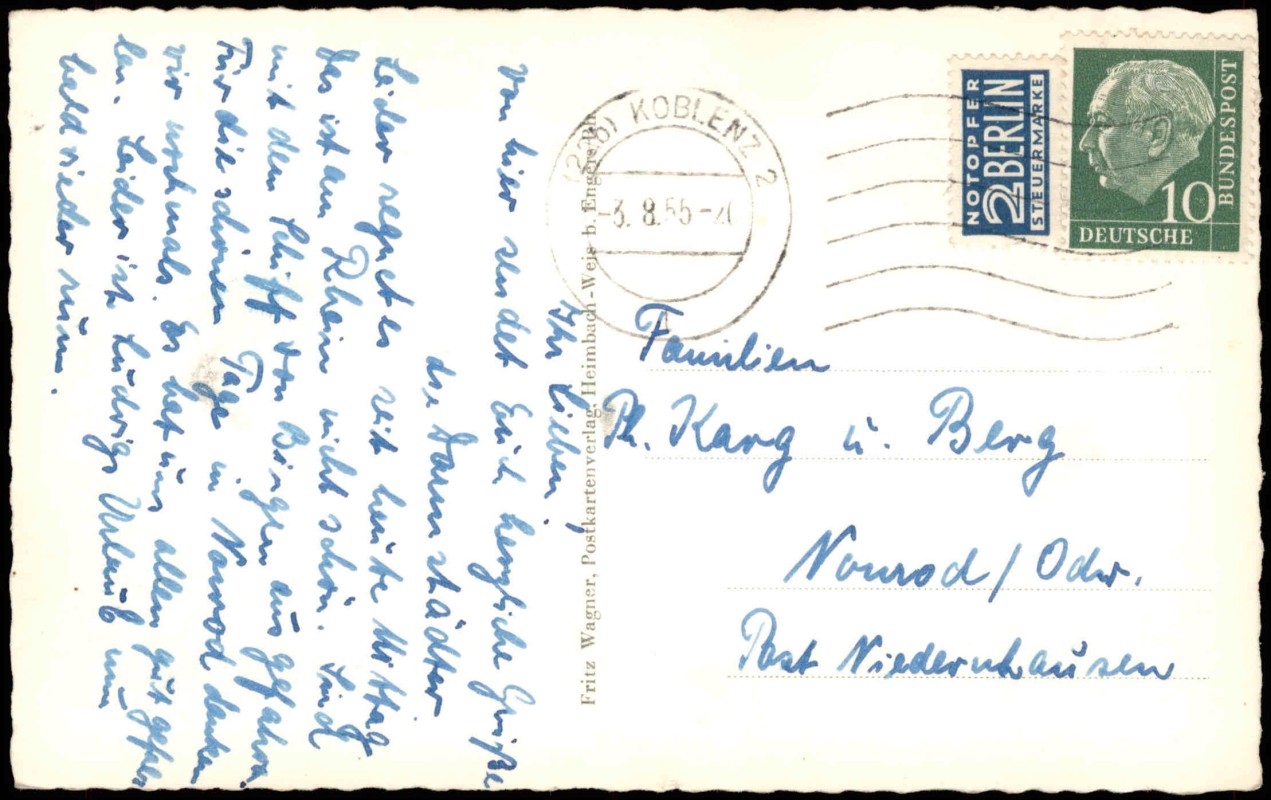 Ihr Lieben!
Von hier sendet Euch herzliche Grüße
die Darmstädter
Leider regnet es seit heute Mittag
Das ist am Rhein nicht schön. Sind
mit dem Schiff von Bingen aus gefahren.
Für die schönen Tage in Nonrod danken
wir nochmals. Es hat uns allen gut gefal
len. Leider ist Ludwigs Urlaub nun
bald wieder rum.
Fritz Wagner, Postkartenverlag, Heimbach-Weis b. Engers/Rh.
KOBLENZ 2
-3.8.55-2
NOTOPFER
2 BERLIN
STEUERMARKE
10
DEUTSCHE
BUNDESPOST
Familien
Ph. Karg u. Berg
Nonrod/Odw.
Post Niedernhausen